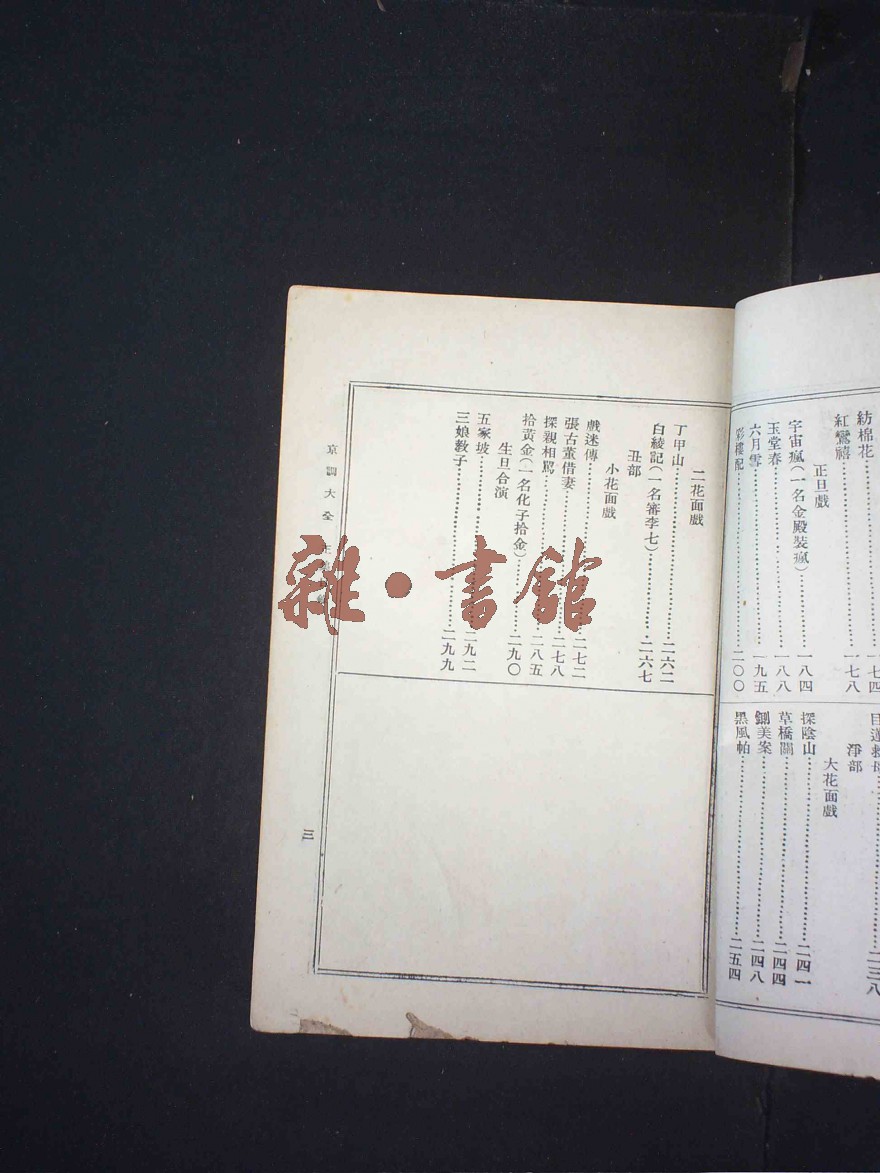 紡棉花⋯⋯一七四
紅鸞禧⋯⋯一七八
正旦戲
宇宙瘋(一名金殿裝瘋)⋯⋯一八四
玉堂春⋯⋯一八八
六月雪⋯⋯一九五
彩樓配⋯⋯二〇〇
目蓮救母⋯⋯二三八
淨部
大花面戲
探陰山⋯⋯二四一
草橋關⋯⋯二四四
鍘美案⋯⋯二四八
黑風帕⋯⋯二五四
二花面戲
丁甲山⋯⋯二六二
白綾記(一名審李七)⋯⋯二六七
丑部
小花面戲
戲迷傳⋯⋯二七二
張古董借妻⋯⋯二七八
探親相罵⋯⋯二八五
拾黃金(一名化子拾金)⋯⋯二九〇
生旦合演
五家坡⋯⋯二九二
三娘教子⋯⋯二九九
京調大全
三
雜·書館